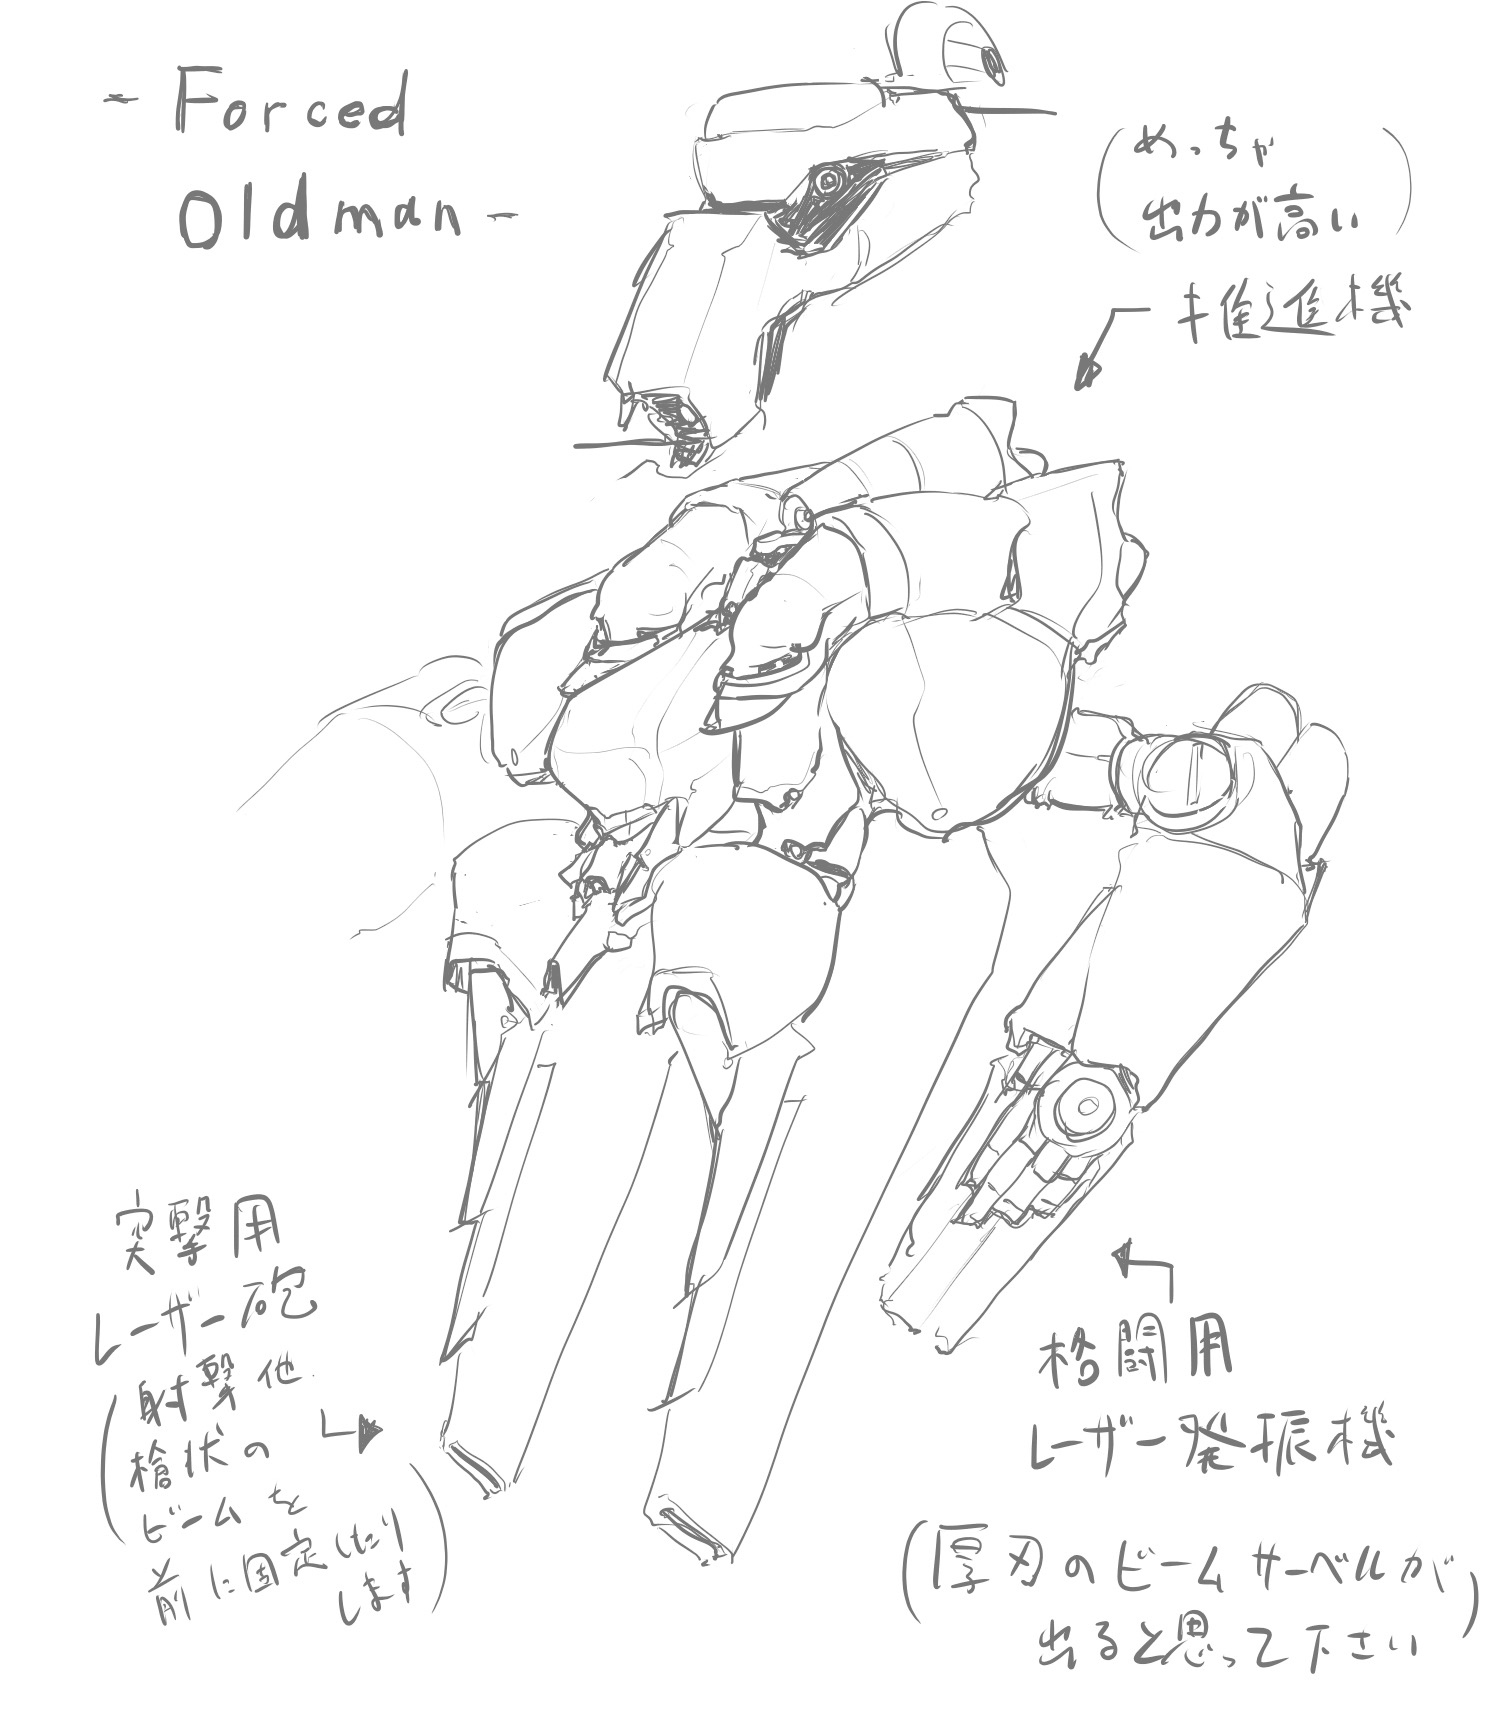 - Forced
Oldman -
(めっちゃ
出力が高い)
推進機
突撃用
レーザー砲
(射撃他
槍状の
ビームを
前に固定したり
します)
格闘用
レーザー発振機
(厚刃のビームサーベルが
出ると思って下さい)